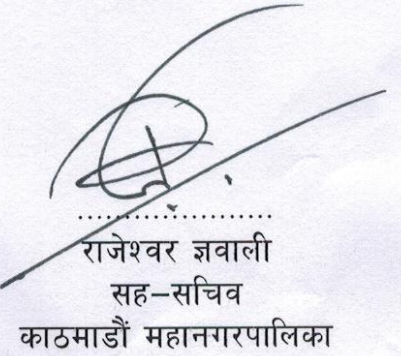 ......................
राजेश्वर ज्ञवाली
सह–सचिव
काठमाडौं महानगरपालिका